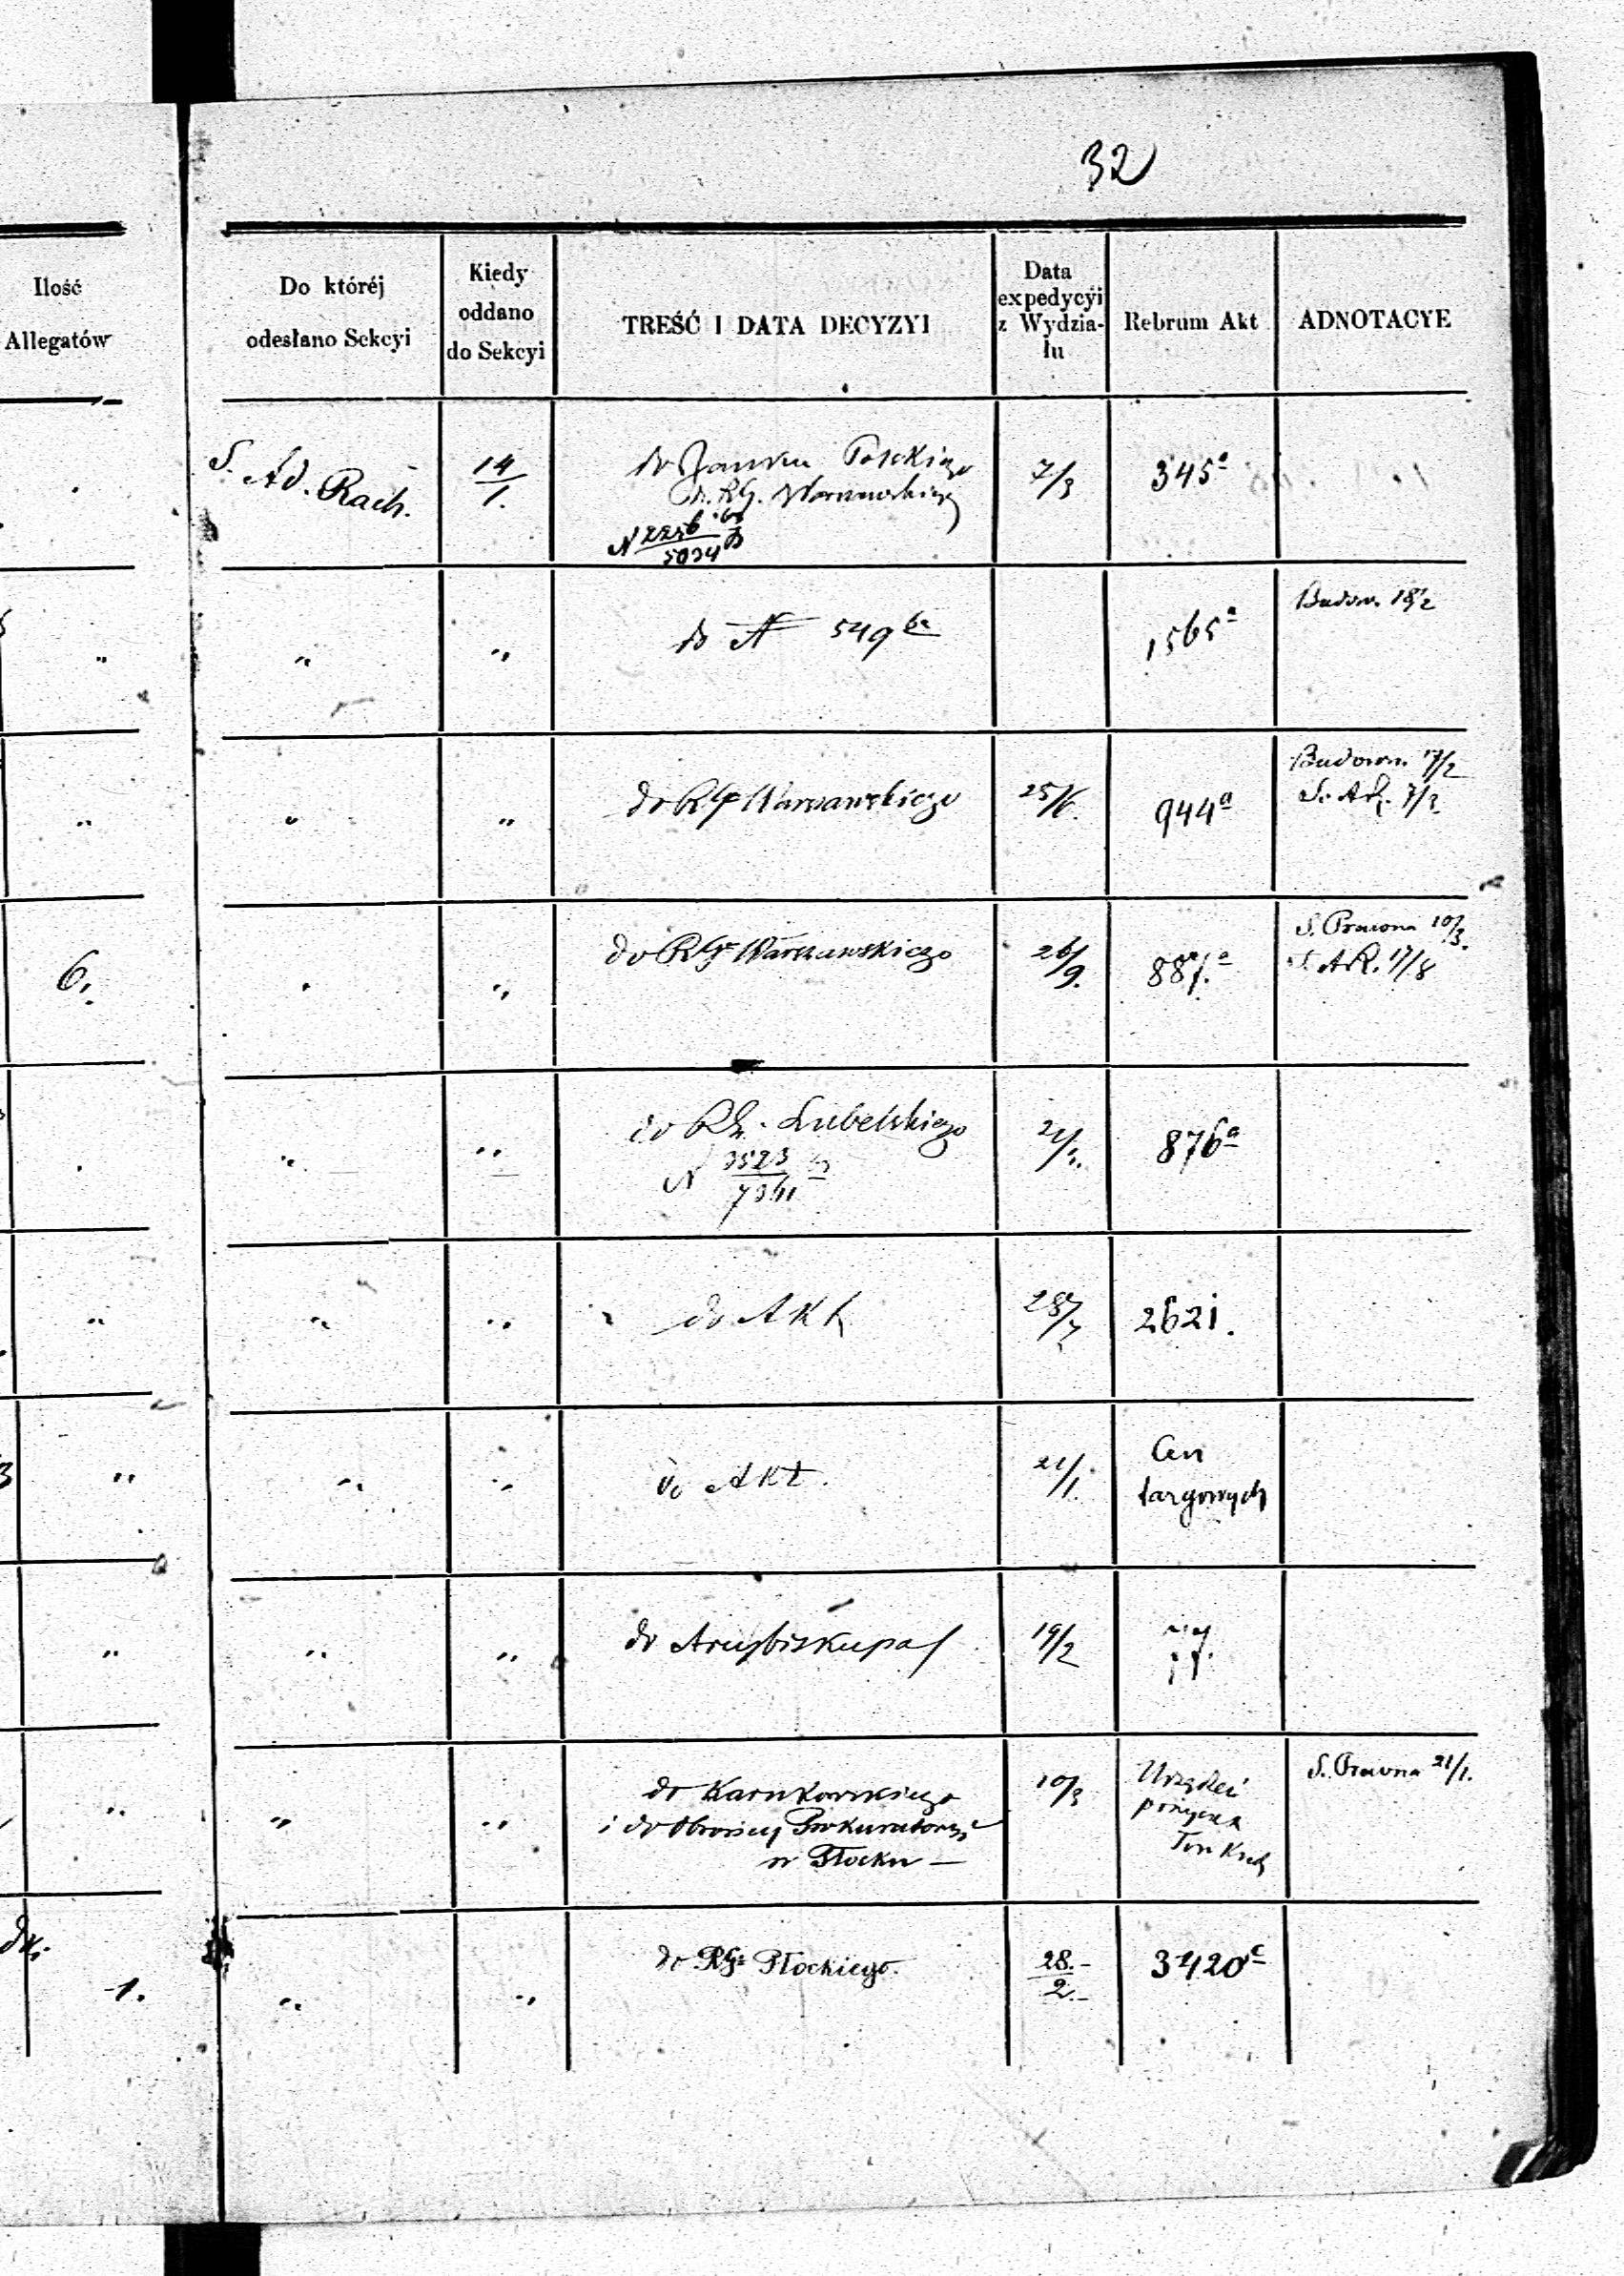 32
Ilość
Allegatów
Do któréj
odesłano Sekcyi
Kiedy
oddano
do Sekcyi
TREŚĆ I DATA DECYZYI
Data
expedycyi
z Wydzia-
łu
Rebrum Akt
ADNOTACYE
S. Ad. Rach.
14/1.
do
RG. Warszawskiego
N 2256
5034
7/3
345a
"
"
"
do N 549
1565a
Budow. 18/2
"
"
"
do RG Warszawskiego
25/6.
944a
Budown. 17/2
S. AR. 7/3.
6.
"
do RG Warszawskiego
26/9.
887.a
S. Prawna 10/3.
S. AR. 17/8
"
"
do RG. Lubelskiego
N 3523
876a
"
"
"
do Akt
28/
2621.
3
"
"
"
do Akt.
21/1.
Cen
targowych
"
"
"
do Arcybiskupa
19/2
"
"
"
do Karnkowskiego
i do Obrońcy Prokuratoryi
w Płocku —
10/3
pożyczek
S. Prawna 21/1.
1.
"
"
do RGr Płockiego.
28.-
2.-
3420c